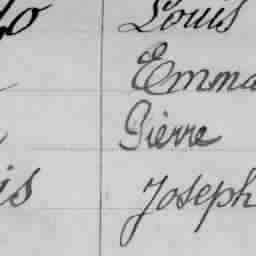 Louis
Emma
Pierre
is Joseph